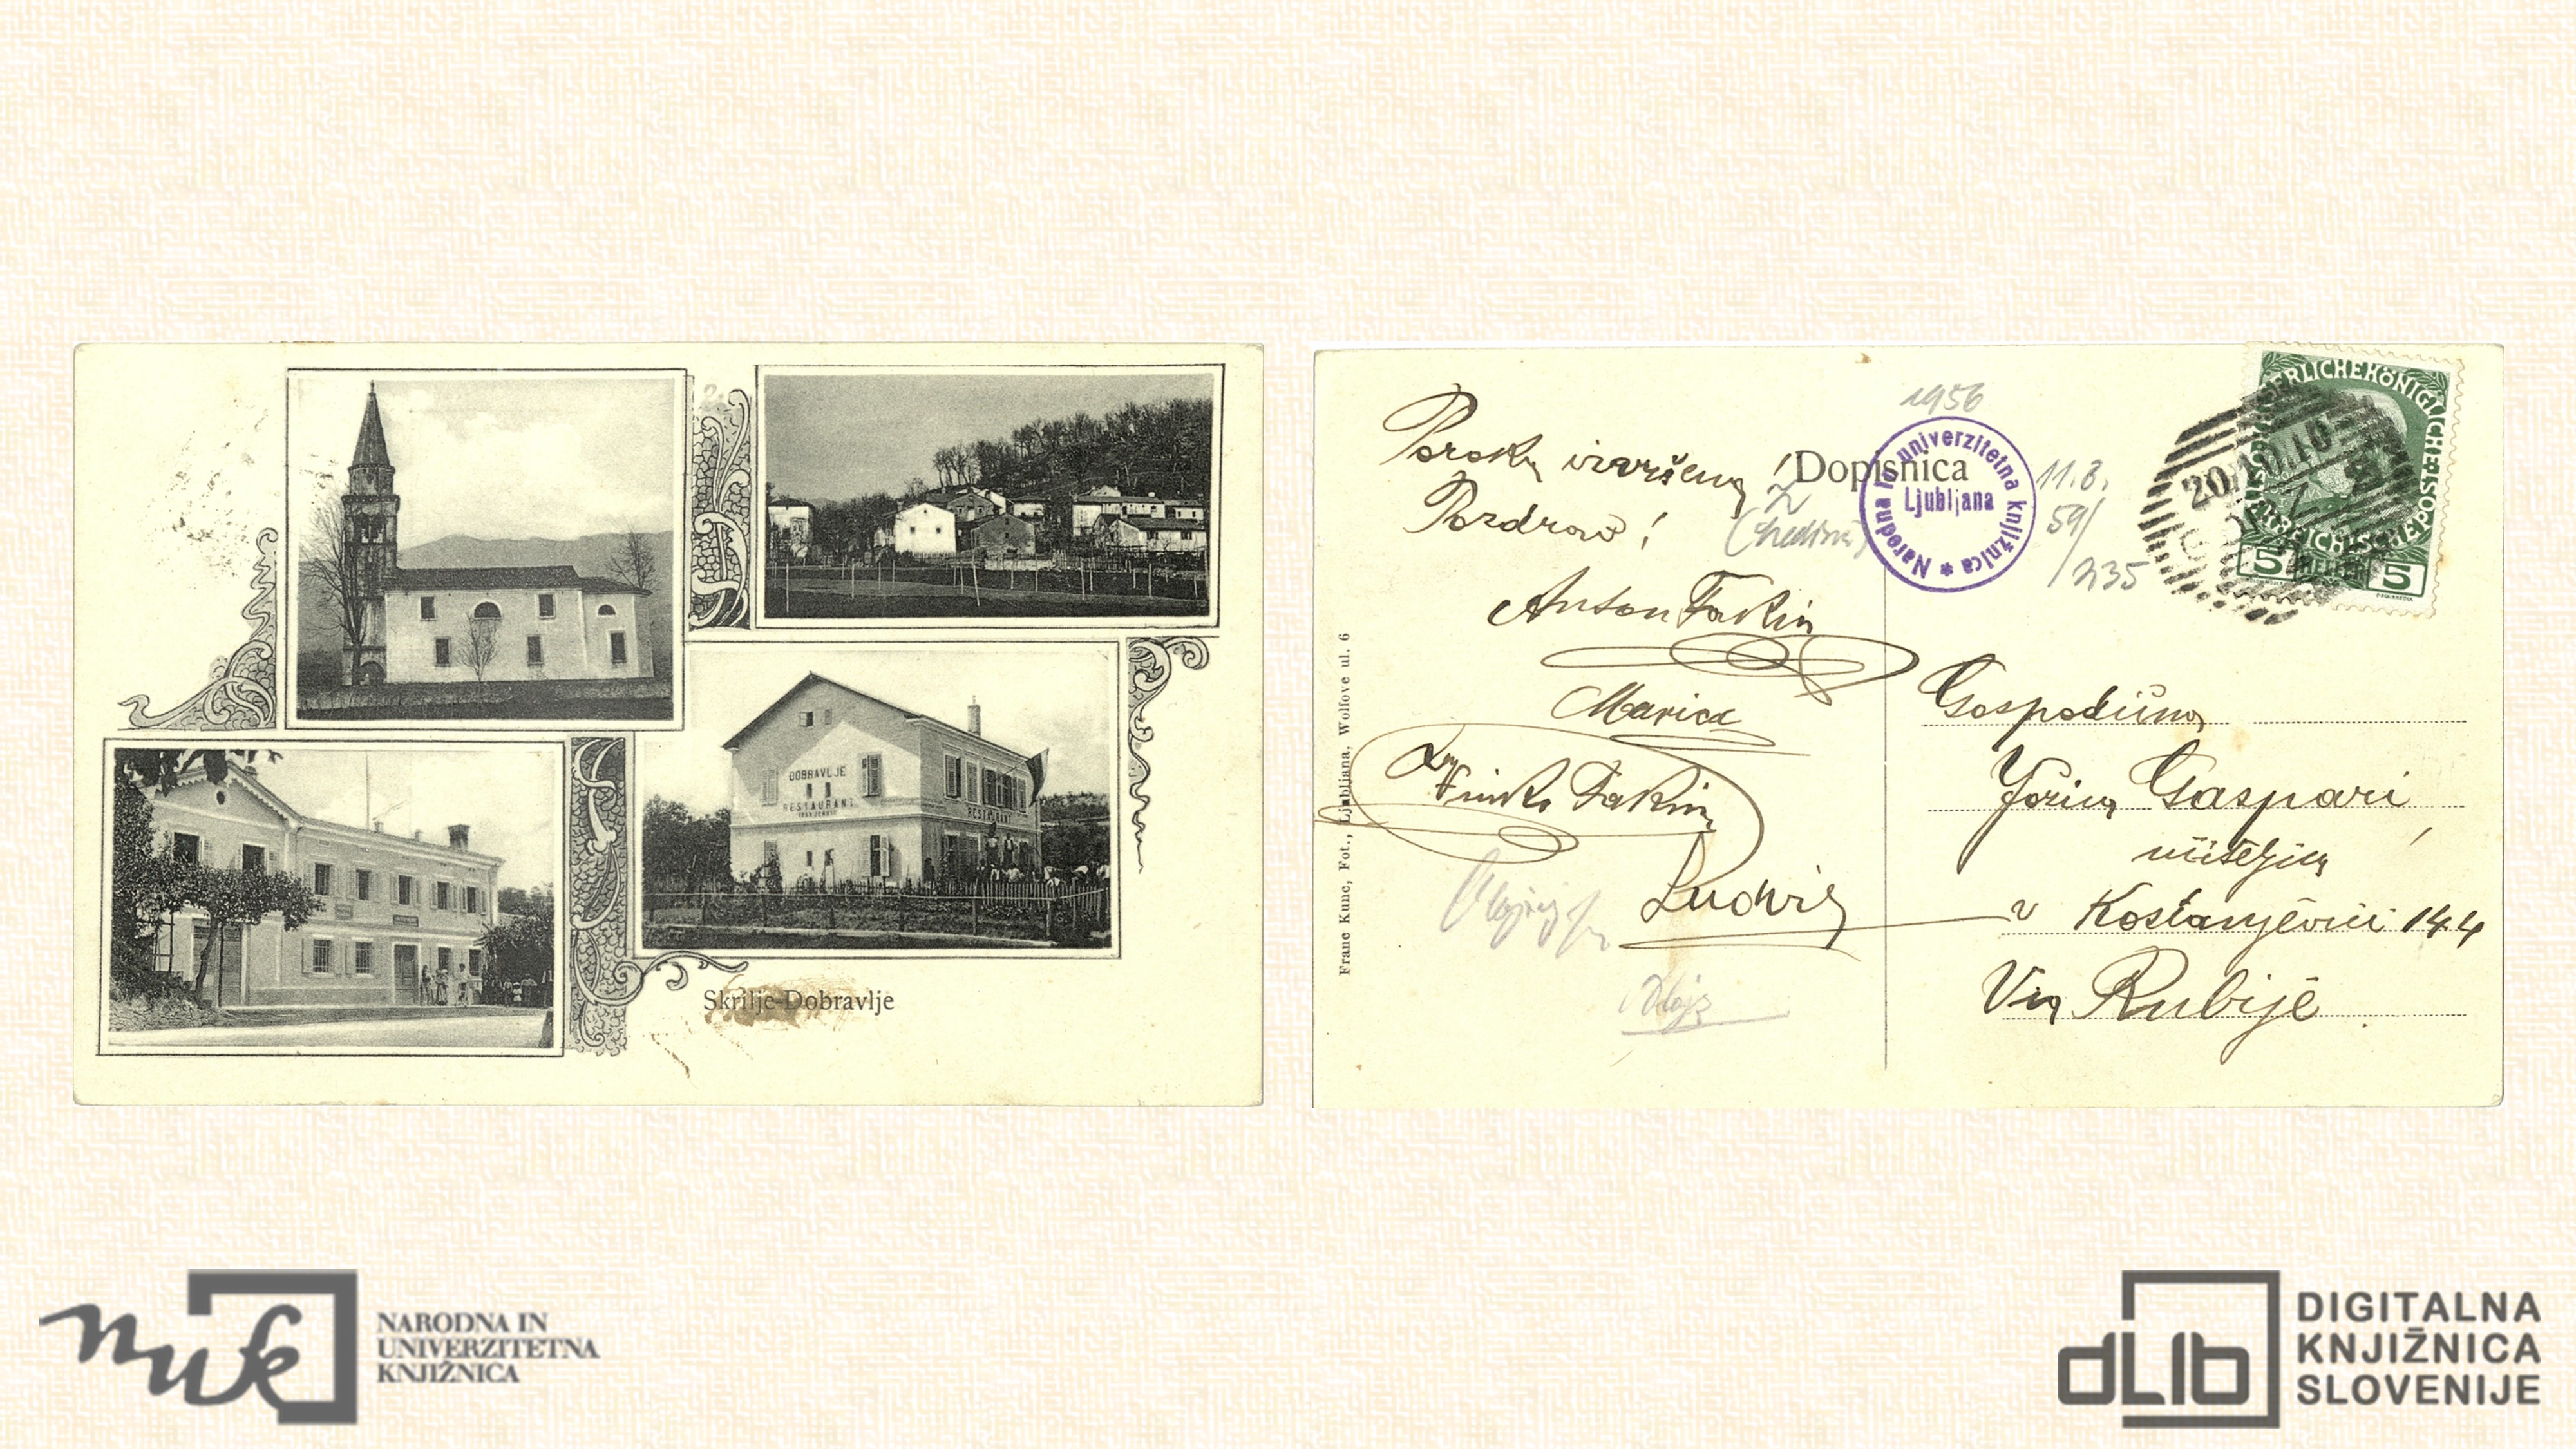 DOBRAVLJE
RESTAURANT
RESTAURANT
Skrilje-Dobravlje
Poroka izvršena!
Pozdrav!
Anton Fakin
Marica
Vinko Fakin
Ludvig
Alojz
Franc Kunc, Fot., Ljubljana. Wolfove ul. 6
Dopisnica
1956
Narodna in univerzitetna knjižnica *
Ljubljana
11.8.
59/
/235
20.10.10
KAISERLICHE KÖNIGLICHE
ÖSTERREICHISCHE POST
5 HELLER 5
Gospodična
Gaspari
učiteljica
v Kostanjevici 144
Via Rubije
nuk
NARODNA IN
UNIVERZITETNA
KNJIŽNICA
dLib
DIGITALNA
KNJIŽNICA
SLOVENIJE